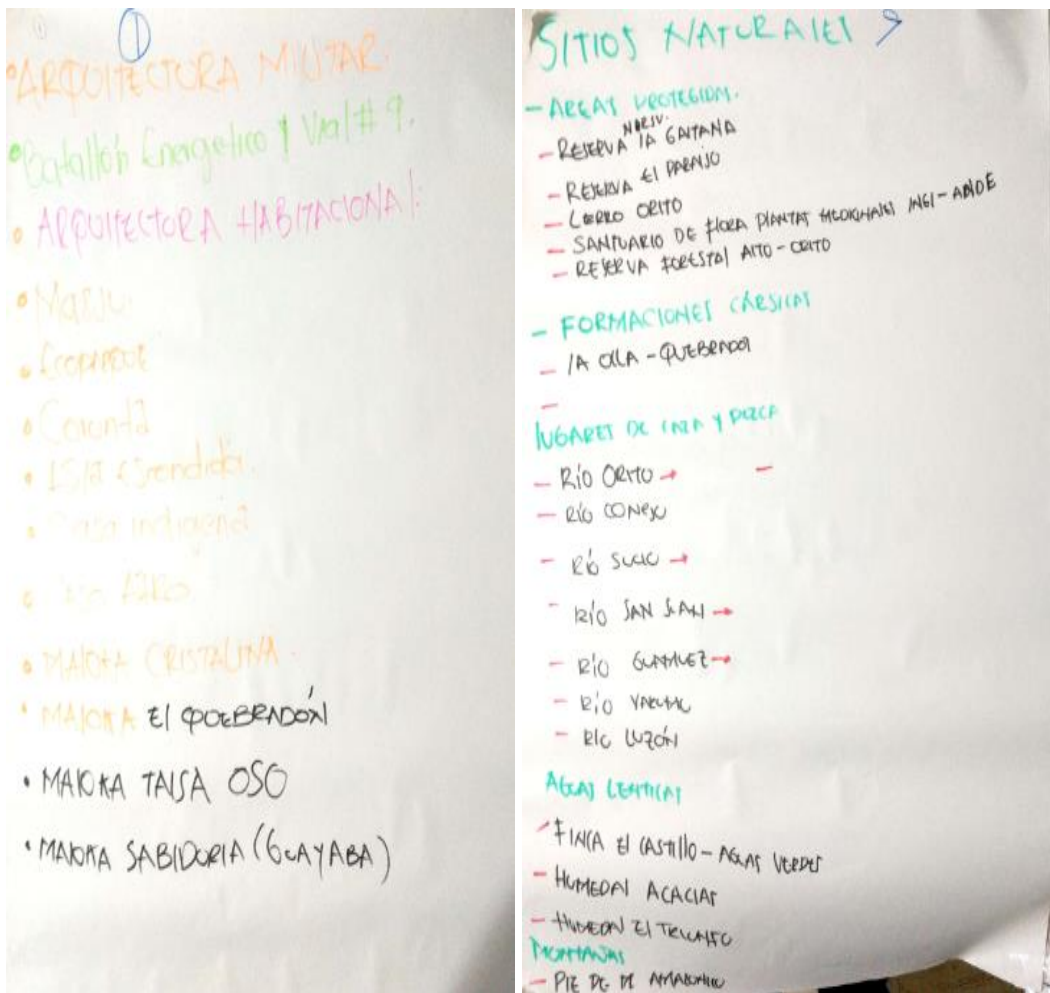 ①
ARQUITECTURA MILITAR.
• Batallón Energetico y Vial # 9.
• ARQUITECTURA HABITACIONAL:
• Ecoparque
• Isla Escondida.
• Casa indigena
• MALOKA CRISTALINA.
• MALOKA El QUEBRADÓN
• MALOKA TAISA OSO
• MALOKA SABIDURIA (GUAYABA)
SITIOS NATURALES
- AREAS PROTEGIDAS.
- RESERVA LA GAITANA
- RESERVA El PARAISO
- CERRO ORITO
- SANTUARIO DE FLORA PLANTAS MEDICINALES INGI-ANDE
- RESERVA FORESTAL ALTO-ORITO
- FORMACIONES CÁRSICAS
- LA OLLA - QUEBRADON
-
LUGARES DE CAZA Y PEZCA
- RÍO ORITO → -
- RÍO CONEJO
- RÍO SUCIO →
- RÍO SAN JUAN →
- RÍO GUAMUEZ →
- RÍO YARUMO
- RIO LUZÓN
AGUAS LENTICAS
- FINCA El CASTILLO - AGUAS VERDES
- HUMEDAL ACACIAS
- HUMEDAL El TRIUNFO
MONTAÑAS
- PIE DE M AMAZONICO